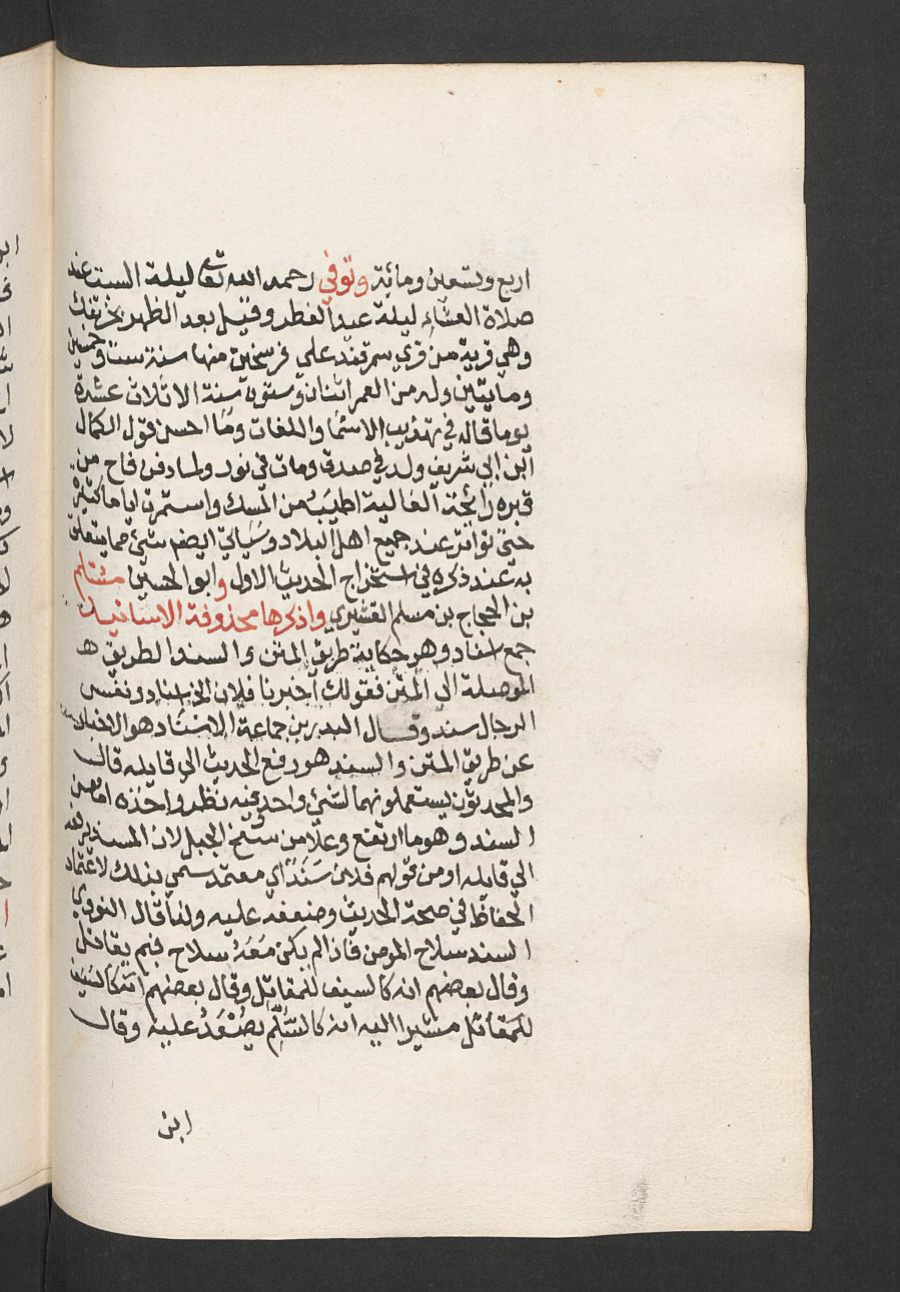 اربع وتسعين ومائة وتوفي رحمه الله تعالى ليلة السبت عند
صلاة العشاء ليلة عيد الفطر وقيل بعد الظهر بخرتنك
وهي قرية من قري سمرقند علي فرسخين منها سنة ست وخمسين
ومايتين وله من العمر اثنتان وستون سنة الا ثلاث عشرة
يوما قاله في تهذيب الاسما واللغات وما احسن قول الكمال
ابن ابي شريف ولد في صدق ومات في نور ولما دفن فاح من
قبره رائحة الغالية اطيب من المسك واستمرت اياما كثيرة
حتى تواتر عند جميع اهل البلاد وسياتي ايضا شئ مما يتعلق
به عند ذكره في استخراج الحديث الاول وابو الحسين مسلم
بن الحجاج بن مسلم القشيري واذكرها محذوفة الاسانيد
جمع اسناد وهو حكاية طريق المتن والسند الطريق
الموصلة الي المتن فقولك اخبرنا فلان الخ اسناد ونفس
الرجال سند وقال البدر بن جماعة الاسناد هو الاخبار
عن طريق المتن والسند هو رفع الحديث الي قايله قال
والمحدثون يستعملونهما لشئ واحد وفيه نظر واخذه اما من
السند وهو ما ارتفع وعلا من سفح الجبل لان المسند يرفعه
الي قايله او من قولهم فلان سَنَد اي معتمد سمي بذلك لاعتماد
الحفاظ في صحة الحديث وضعفه عليه ولذا قال النووي
السند سلاح المومن فاذا لم يكن مَعَهُ سلاح فبم يقاتل
وقال بعضهم انه كالسيف للمقاتل وقال بعضهم انه كالسيف
للمقاتل مشيرا اليه انه كالسُّلَّم يصْعَدُ عليه وقال
ابن